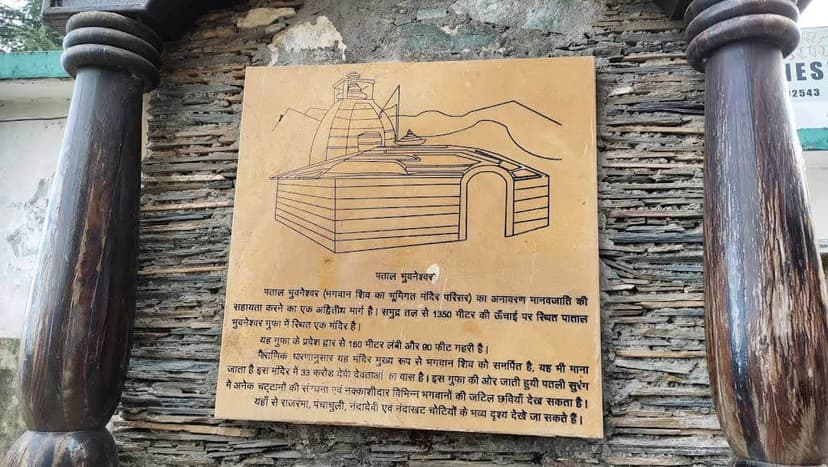 IES
02543
पताल भुवनेश्वर
पताल भुवनेश्वर (भगवान शिव का भूमिगत मंदिर परिसर) का अनावरण मानवजाति की
सहायता करने का एक अद्वितीय मार्ग है। समुद्र तल से 1350 मीटर की ऊँचाई पर स्थित पाताल
भुवनेश्वर गुफा में स्थित एक मंदिर है।
यह गुफा के प्रवेश द्वार से 160 मीटर लंबी और 90 फीट गहरी है।
पैराणिक धारणानुसार यह मंदिर मुख्य रूप से भगवान शिव को समर्पित है, यह भी माना
जाता है इस मंदिर में 33 करोड देवी देवताओं का वास है। इस गुफा की ओर जाती हुयी पतली सुरंग
में अनेक चट्टानों की संरचना एवं नक्काशीदार विभिन्न भगवानों की जटिल छवियाँ देख सकता है।
यहाँ से राजरंभा, पंचाचुली, नंदादेवी एवं नंदाखट चोटियों के भव्य दृश्य देखे जा सकते हैं।